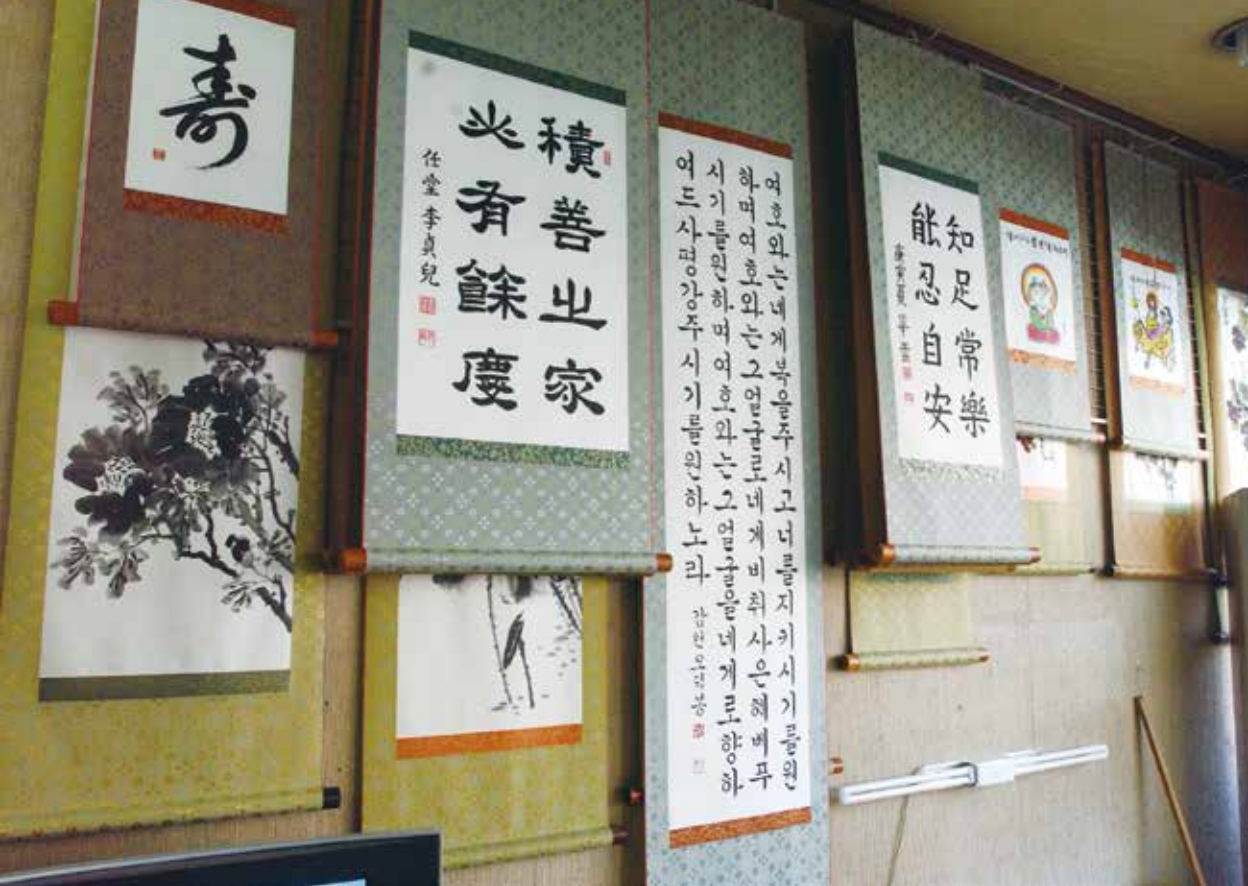 寿
積善之家
必有餘慶
任堂 李貞兒
여호와는네게복을주시고너를지키시기를원
하며여호와는그얼굴로네게비취사은혜베푸
시기를원하며여호와는그얼굴을네게로향하
여드사평강주시기를원하노라
知足常樂
能忍自安
庚寅夏